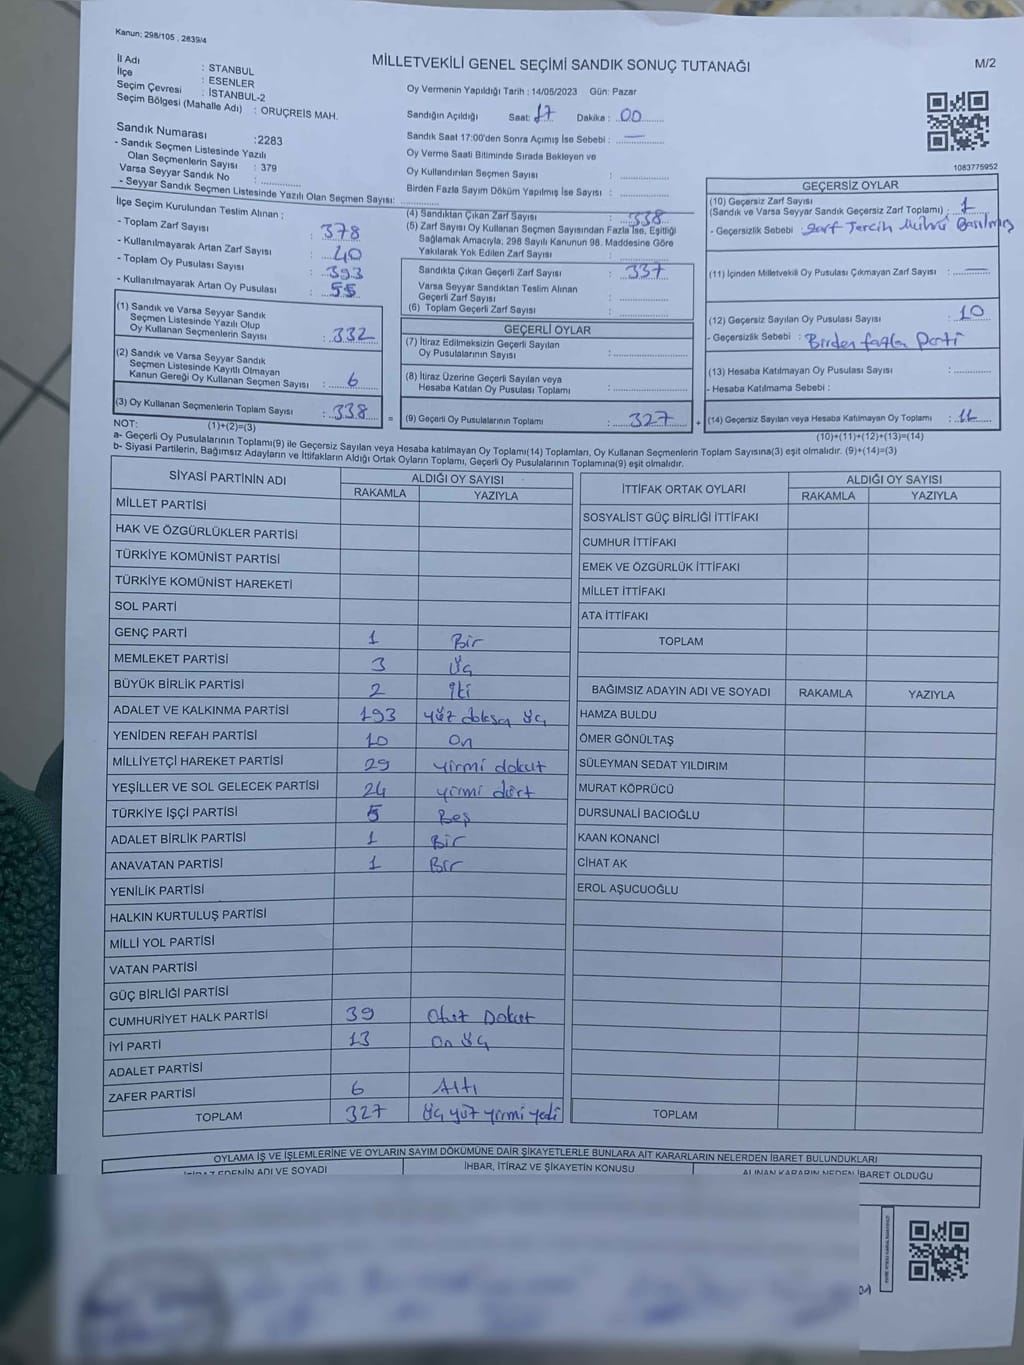 Kanun; 298/105 , 2839/4
MİLLETVEKİLİ GENEL SEÇİMİ SANDIK SONUÇ TUTANAĞI
M/2
İl Adı : STANBUL
İlçe : ESENLER
Seçim Çevresi : İSTANBUL-2
Seçim Bölgesi (Mahalle Adı) : ORUÇREİS MAH.
Sandık Numarası :2283
- Sandık Seçmen Listesinde Yazılı
Olan Seçmenlerin Sayısı : 379
Varsa Seyyar Sandık No :
- Seyyar Sandık Seçmen Listesinde Yazılı Olan Seçmen Sayısı:
Oy Vermenin Yapıldığı Tarih : 14/05/2023 Gün: Pazar
Sandığın Açıldığı Saat: 17 Dakika : 00
Sandık Saat 17:00'den Sonra Açımış İse Sebebi : —
Oy Verme Saati Bitiminde Sırada Bekleyen ve
Oy Kullandırılan Seçmen Sayısı :
Birden Fazla Sayım Döküm Yapılmış İse Sayısı :
1083775952
İlçe Seçim Kurulundan Teslim Alınan ;
- Toplam Zarf Sayısı : 378
- Kullanılmayarak Artan Zarf Sayısı : 40
- Toplam Oy Pusulası Sayısı : 393
- Kullanılmayarak Artan Oy Pusulası : 55
(1) Sandık ve Varsa Seyyar Sandık
Seçmen Listesinde Yazılı Olup
Oy Kullanan Seçmenlerin Sayısı : 332
(2) Sandık ve Varsa Seyyar Sandık
Seçmen Listesinde Kayıtlı Olmayan
Kanun Gereği Oy Kullanan Seçmen Sayısı : 6
(3) Oy Kullanan Seçmenlerin Toplam Sayısı : 338 =
(4) Sandıktan Çıkan Zarf Sayısı : 338
(5) Zarf Sayısı Oy Kullanan Seçmen Sayısından Fazla İse, Eşitliği
Sağlamak Amacıyla, 298 Sayılı Kanunun 98. Maddesine Göre
Yakılarak Yok Edilen Zarf Sayısı :
Sandıkta Çıkan Geçerli Zarf Sayısı : 337
Varsa Seyyar Sandıktan Teslim Alınan
Geçerli Zarf Sayısı :
(6) Toplam Geçerli Zarf Sayısı :
GEÇERLİ OYLAR
(7) İtiraz Edilmeksizin Geçerli Sayılan
Oy Pusulalarının Sayısı :
(8) İtiraz Üzerine Geçerli Sayılan veya
Hesaba Katılan Oy Pusulası Toplamı :
(9) Geçerli Oy Pusulalarının Toplamı : 327 +
GEÇERSİZ OYLAR
(10) Geçersiz Zarf Sayısı
(Sandık ve Varsa Seyyar Sandık Geçersiz Zarf Toplamı) : 1
- Geçersizlik Sebebi : Zarf Tercih Mührü Basılmış
(11) İçinden Milletvekili Oy Pusulası Çıkmayan Zarf Sayısı : —
(12) Geçersiz Sayılan Oy Pusulası Sayısı : 10
- Geçersizlik Sebebi : Birden fazla Parti
(13) Hesaba Katılmayan Oy Pusulası Sayısı :
- Hesaba Katılmama Sebebi :
(14) Geçersiz Sayılan veya Hesaba Katılmayan Oy Toplamı : 11
NOT: (1)+(2)=(3)
(10)+(11)+(12)+(13)=(14)
a- Geçerli Oy Pusulalarının Toplamı(9) ile Geçersiz Sayılan veya Hesaba katılmayan Oy Toplamı(14) Toplamları, Oy Kullanan Seçmenlerin Toplam Sayısına(3) eşit olmalıdır. (9)+(14)=(3)
b- Siyasi Partilerin, Bağımsız Adayların ve İttifakların Aldığı Ortak Oyların Toplamı, Geçerli Oy Pusulalarının Toplamına(9) eşit olmalıdır.
SİYASİ PARTİNİN ADI ALDIĞI OY SAYISI
RAKAMLA YAZIYLA
MİLLET PARTİSİ
HAK VE ÖZGÜRLÜKLER PARTİSİ
TÜRKİYE KOMÜNİST PARTİSİ
TÜRKİYE KOMÜNİST HAREKETİ
SOL PARTİ
GENÇ PARTİ 1 Bir
MEMLEKET PARTİSİ 3 Üç
BÜYÜK BİRLİK PARTİSİ 2 İki
ADALET VE KALKINMA PARTİSİ 193 yüz doksan üç
YENİDEN REFAH PARTİSİ 10 On
MİLLİYETÇİ HAREKET PARTİSİ 29 yirmi dokuz
YEŞİLLER VE SOL GELECEK PARTİSİ 24 yirmi dört
TÜRKİYE İŞÇİ PARTİSİ 5 Beş
ADALET BİRLİK PARTİSİ 1 Bir
ANAVATAN PARTİSİ 1 Bir
YENİLİK PARTİSİ
HALKIN KURTULUŞ PARTİSİ
MİLLİ YOL PARTİSİ
VATAN PARTİSİ
GÜÇ BİRLİĞİ PARTİSİ
CUMHURİYET HALK PARTİSİ 39 Otuz Dokuz
İYİ PARTİ 13 On üç
ADALET PARTİSİ
ZAFER PARTİSİ 6 Altı
TOPLAM 327 Üç yüz yirmi yedi
İTTİFAK ORTAK OYLARI ALDIĞI OY SAYISI
RAKAMLA YAZIYLA
SOSYALİST GÜÇ BİRLİĞİ İTTİFAKI
CUMHUR İTTİFAKI
EMEK VE ÖZGÜRLÜK İTTİFAKI
MİLLET İTTİFAKI
ATA İTTİFAKI
TOPLAM
BAĞIMSIZ ADAYIN ADI VE SOYADI RAKAMLA YAZIYLA
HAMZA BULDU
ÖMER GÖNÜLTAŞ
SÜLEYMAN SEDAT YILDIRIM
MURAT KÖPRÜCÜ
DURSUNALİ BACIOĞLU
KAAN KONANCİ
CİHAT AK
EROL AŞUCUOĞLU
TOPLAM
OYLAMA İŞ VE İŞLEMLERİNE VE OYLARIN SAYIM DÖKÜMÜNE DAİR ŞİKAYETLERLE BUNLARA AİT KARARLARIN NELERDEN İBARET BULUNDUKLARI
İTİRAZ EDENİN ADI VE SOYADI İHBAR, İTİRAZ VE ŞİKAYETİN KONUSU ALINAN KARARIN NEDEN İBARET OLDUĞU